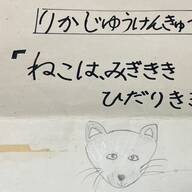 りかじゆうけんきゅ
「ねこは、みぎきき
ひだりき